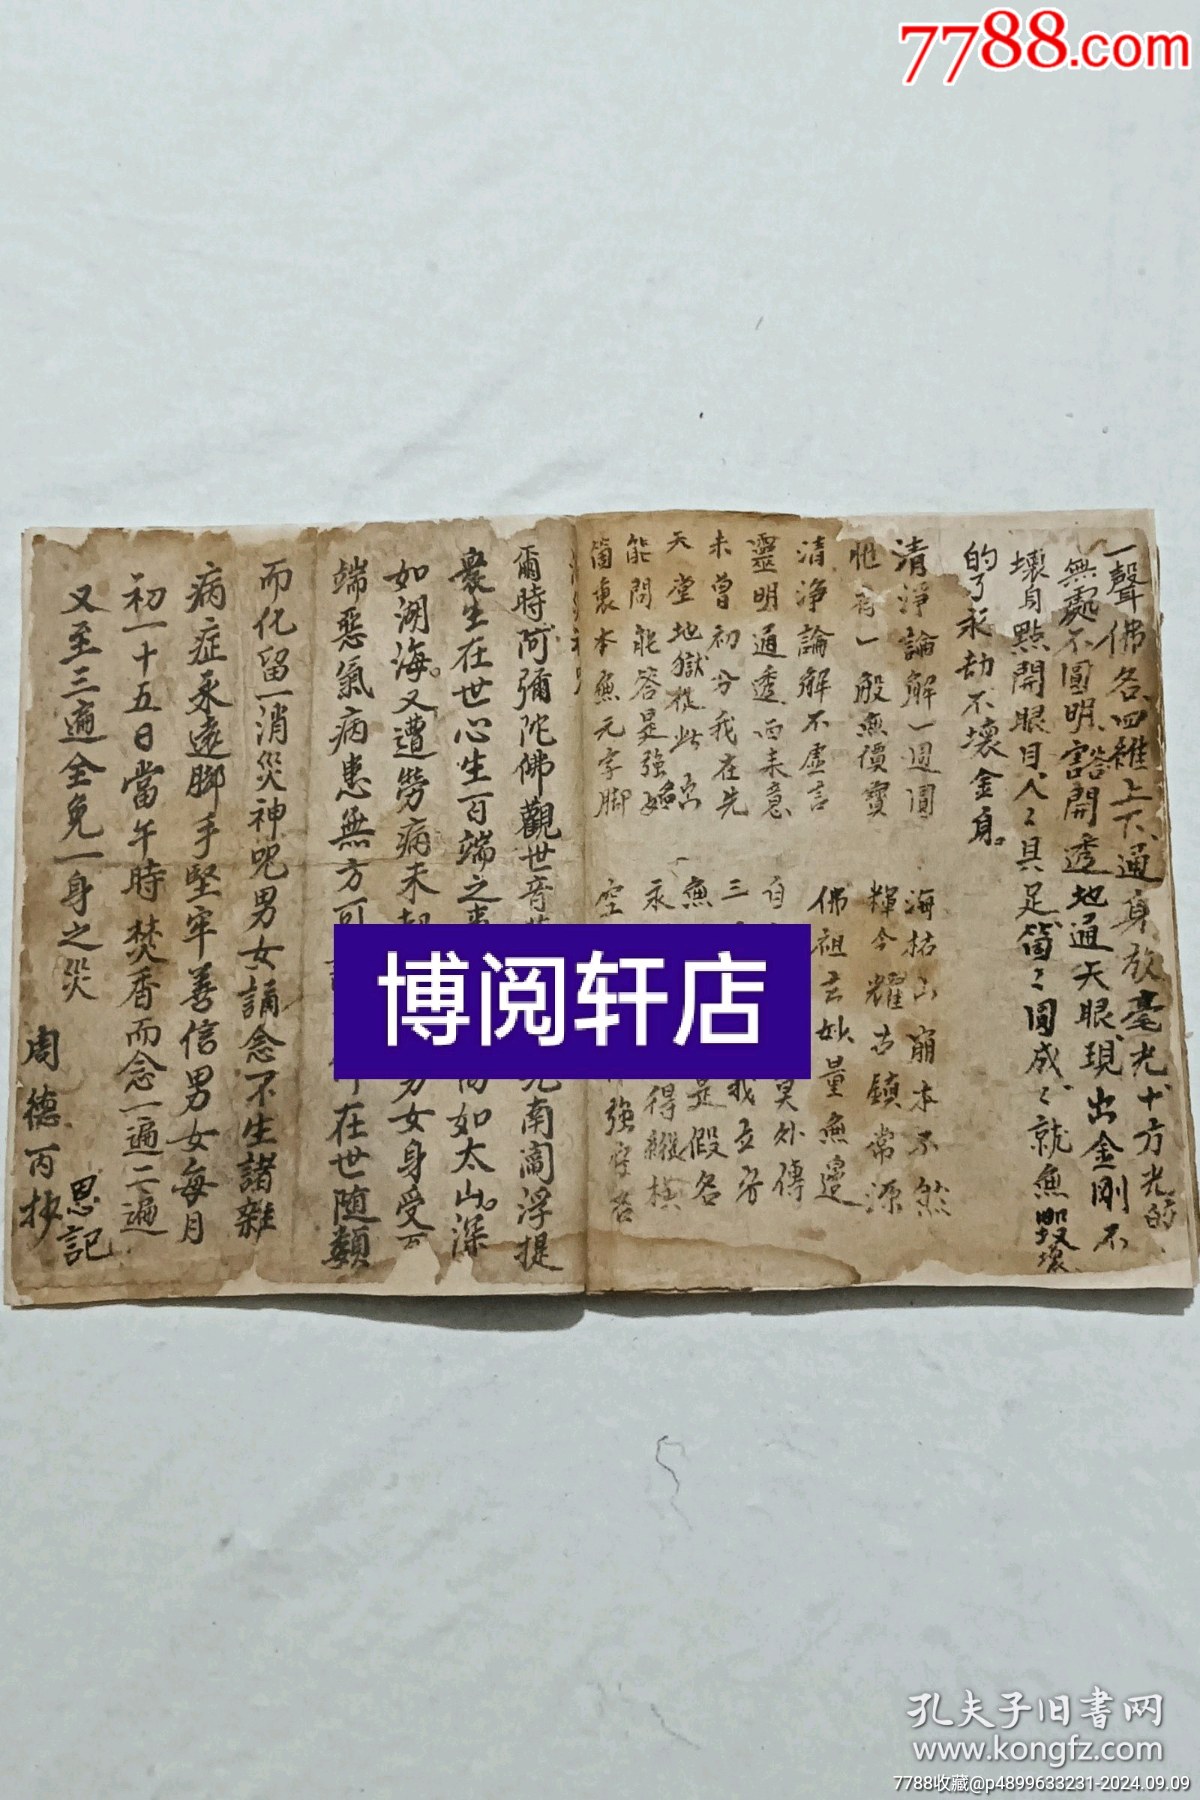 7788.com
一聲佛名四維上下通身放毫光十方光的
無處不圓明豁開透地通天眼現出金剛不
壞身點開眼目人々具足箇々圓成々就魚壞
的了永劫不壞金身
清淨論解一週圓 海枯山崩本不然
惟有一般無價寶 輝今耀古鎮常源
清淨論解不虛言 佛祖玄妙量無邊
靈明通透西來意 莫外傳
未曾初分我在先 三 我立
天堂地獄從此 無 是假名
能問能答是強 永 得縱橫
箇裏本無元字脚 空 強安名
爾時阿彌陀佛觀世音 南閻浮提
衆生在世心生百端之 高如太山深
如湖海又遭勞病未 男女身受百
端惡氣病患無方可 在世随類
而化留一消災神咒男女誦念不生諸雜
病症永遠脚手堅牢善信男女每月
初一十五日當午時焚香而念一遍二遍
又至三遍全免一身之災
思記
周德丙抄
博阅轩店
孔夫子旧书网
www.kongfz.com
7788收藏@p4899633231-2024.09.09